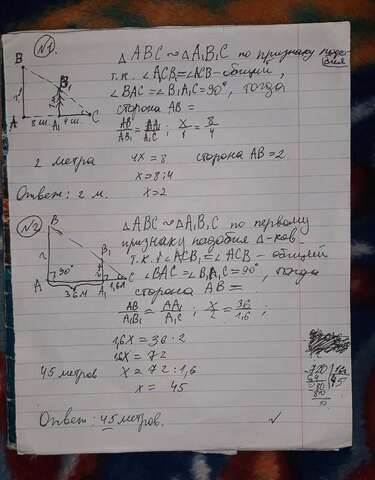 №1.
B
B₁
A 8 ш. A₁ 4 ш. C
△ABC ~ △A₁B₁C по признаку подобия
т.к. ∠ACB₁=∠ACB-общий,
∠BAC=∠B₁A₁C=90°, тогда
сторона AB=
AB/A₁B₁ = AA₁/A₁C ; x/1 = 8/4
2 метра 4x=8 сторона AB=2.
x=8:4
Ответ: 2 м. x=2
№2
B
B₁
90°
A A₁ C
36 м 1,6 м
△ABC ~ △A₁B₁C по первому
признаку подобия △-ков.
т.к. ∠ACB₁=∠ACB-общий
∠BAC=∠B₁A₁C=90°, тогда
сторона AB=
AB/A₁B₁ = AA₁/A₁C ; x/2 = 36/1,6 ;
1,6x=36·2
1,6x=72
45 метров x=72:1,6
x=45
Ответ: 45 метров.